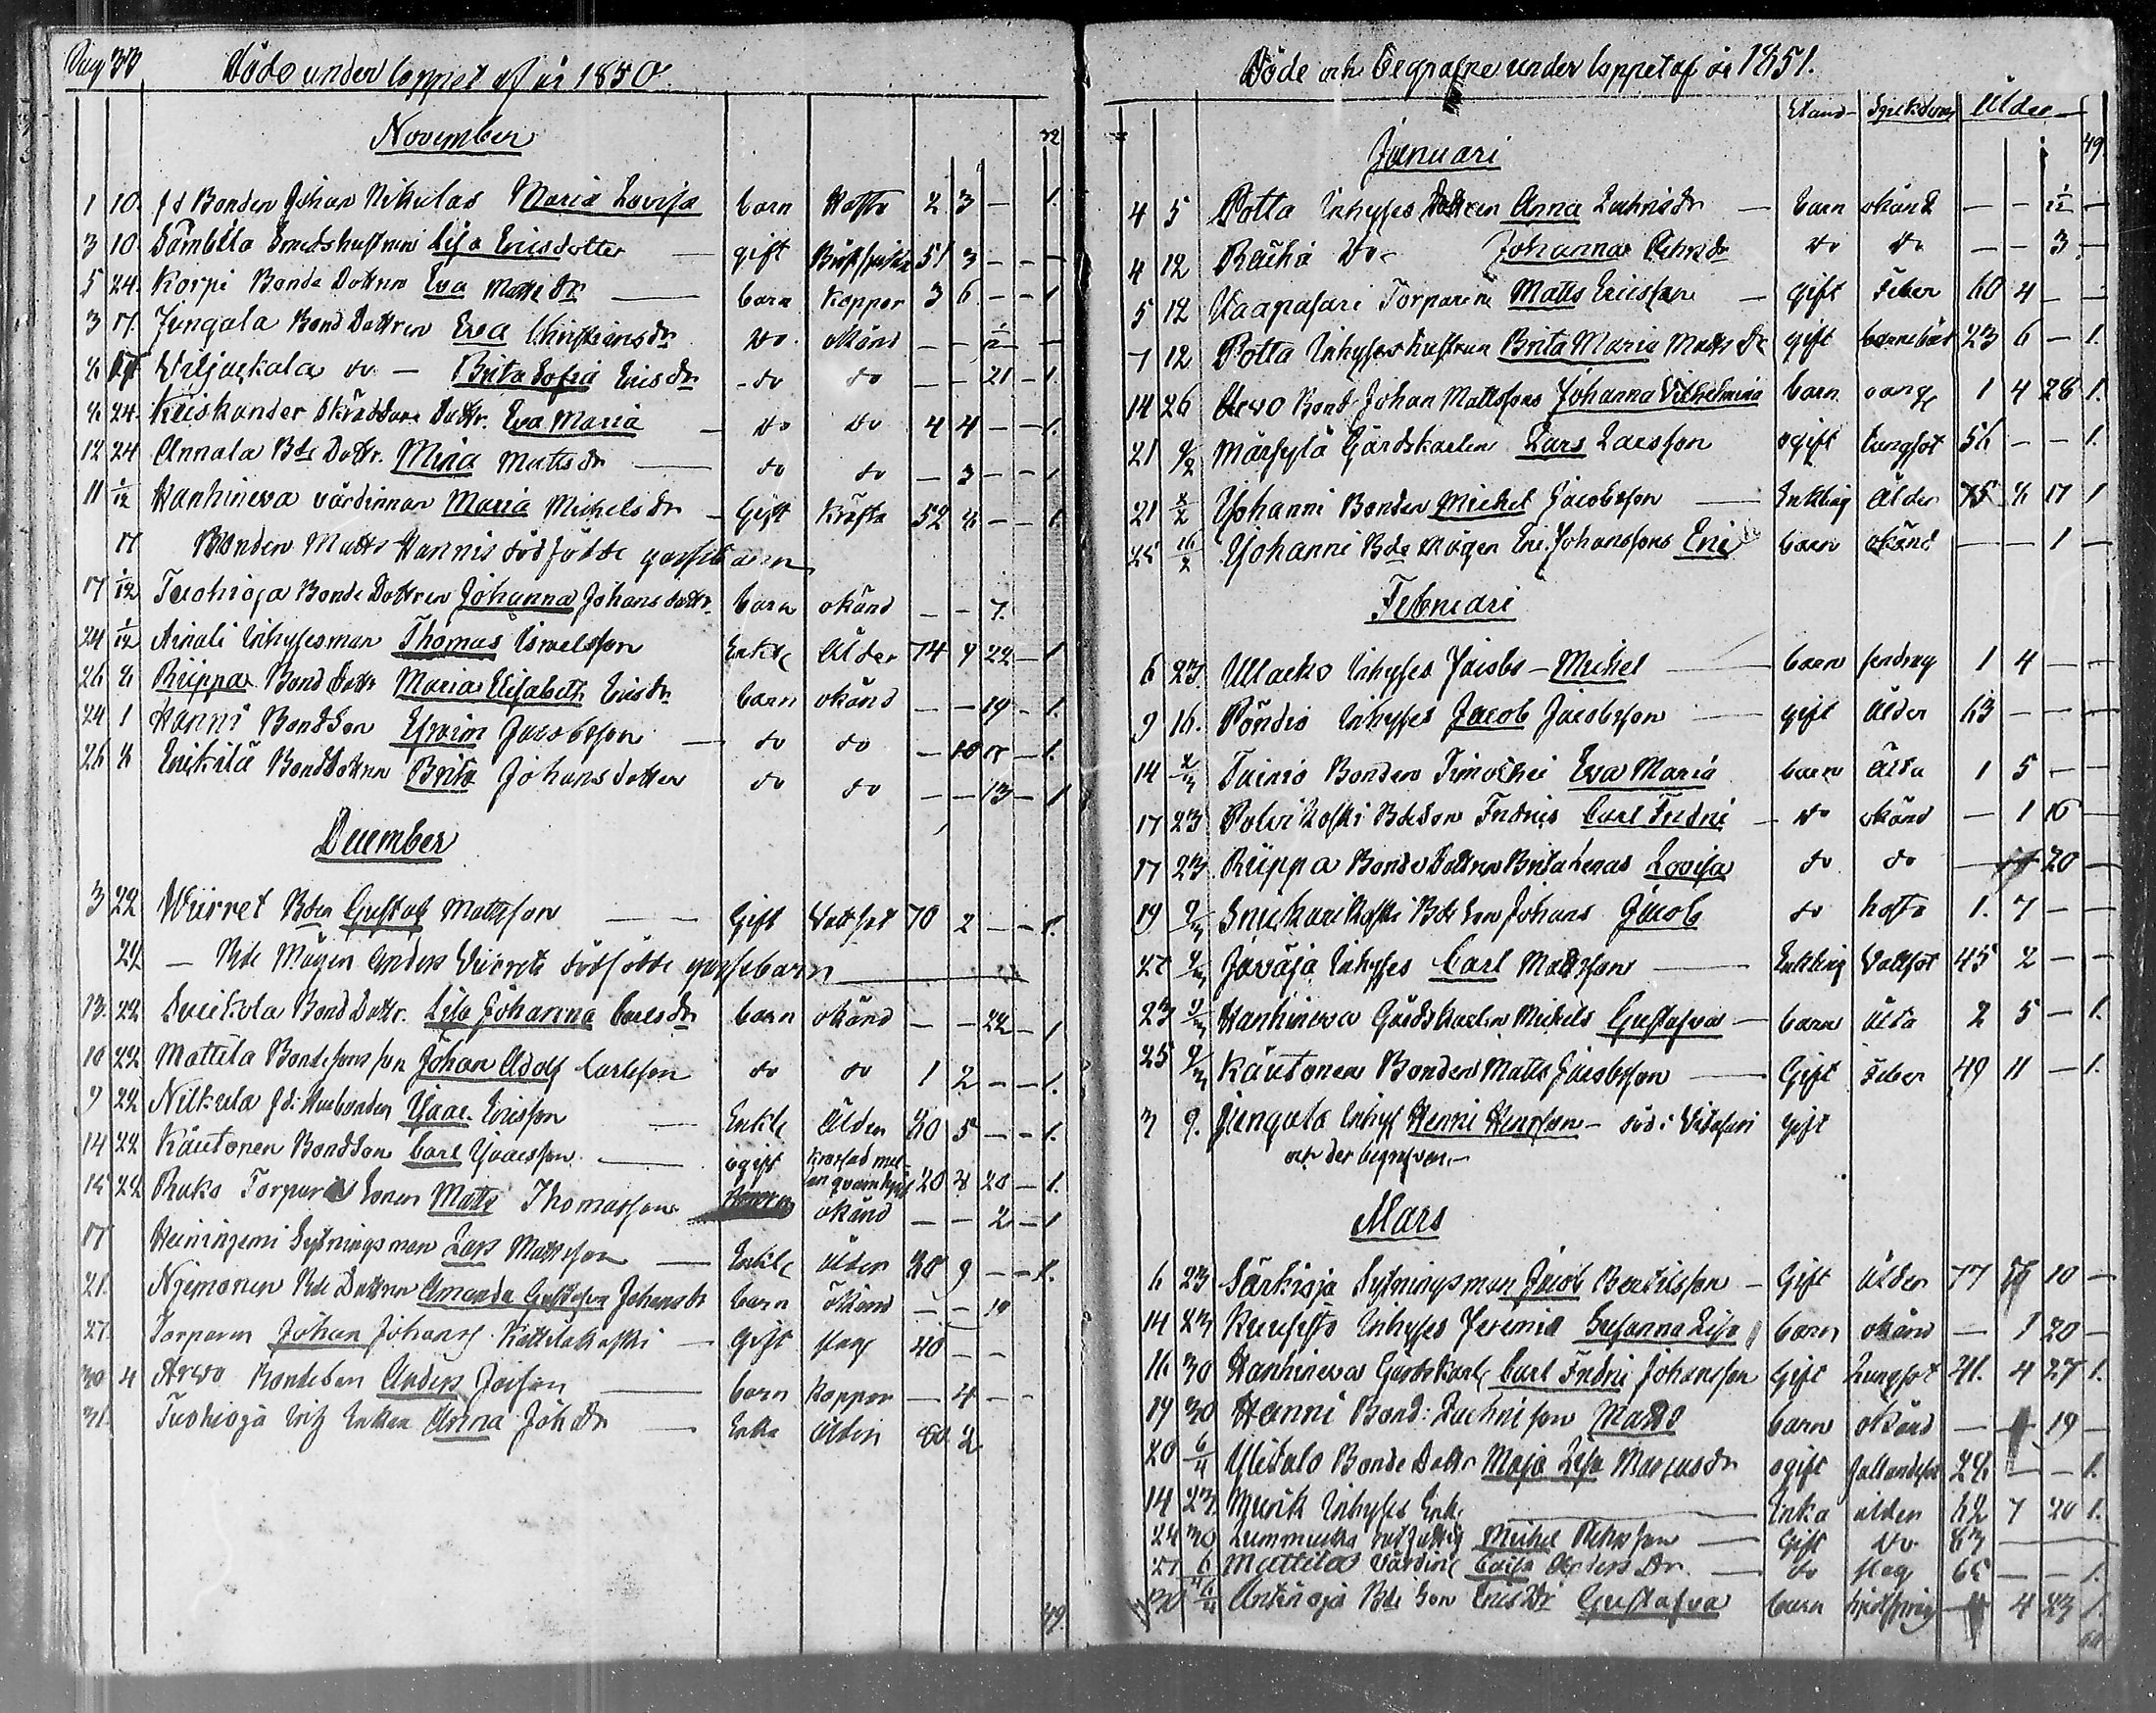 Pag 33
Döde under loppet af år 1850.
November
32
1 10. fd Bonden Johan Nikulas Maria Lovisa barn Hosta 2 3 — 1.
3 10 Sämbilä Smedshustrun Lisa Ericsdotter — gift 51 3 — — —
5 24. Korpi Bonde Dottren Eva Matts dr — barn Koppor 3 6 — — 1
3 17. Jungala Bond Dottren Eva Christiansdr do okänd — — 1/2 —
4 17 Wiljaskala do — Brita Sofia Ericsdr do do — — 21 — 1.
4 24. Keiskander Skräddare Dottr. Eva Maria — do do 4 4 — — 1.
12 24 Annala Bde Dottr. Mina Mattsdr — do do — 3 — — 1
11 1/12 Hanhineva värdinnan Maria Michelsdr — Gift Kräfta 52 4 — — 1.
17 Bonden Matts Hannis dödfödde gossebarn
17 1/12 Tuohioja Bonde Dottren Johanna Johans dottr. barn okänd — — 7.
24 1/12 Ainali Inhysesman Thomas Israelsson Enkl Ålder 74 9 22 — 1
26 4 Riippa Bond Dottr Maria Elisabeth Ericsdr barn okänd — — 19 — 1.
24 1 Hanni Bondson Efraim Jacobsson — do do — 10 17 — 1.
26 4 Erikilä Bonddottren Brita Johans dotter do do — — 13 — 1
December
3 22 Wiirret Bden Gustaf Mattsson — Gift Vattsot 70 2 — — 1.
24 — Bde Mågen Anders Wiirrets dödfödde gossebarn
13. 22 Luikola Bond Dottr. Lisa Johanna Carlsdr barn okänd — — 22 — 1
10 22 Mattila Bondesons son Johan Adolf Carlsson do do 1 2 — — 1.
9 22 Nikula fd: Husbonden Isaac Ericsson — Enkl Ålder 80 5 — — 1.
14 22 Käutonen Bondson Carl Isaacsson — ogift krossad mel- 20 8 20 — 1.
an qvarnhjul
15 22 Ruko Torparens sonen Matts Thomasson okänd — — 2 — 1
17 Heininiemi Sytningsman Lars Mattsson — Enkl ålder 80 9 — — 1.
21. Nyemonen Bde Dottren Amanda Gustafva Johansdr barn okänd — — 10
27 Torparen Johan Johanss. Kattilakoski — Gift slag 40 — —
30 4 Arvo Bondeson Anders — barn Koppor — 4 — —
31. Tuohioja Enkan Anna Johdr — Enka ålder 80 2
49.
Döde och begrafne under loppet af år 1851.
Stand Sjukdom Ålder
Januari
49.
4 5 Potta Inhyses Dottren Anna Zachrisdr — barn okänd — — 1/12 —
4 12 Räihä do Johanna Pehrsdr do do — — 3 —
5 12 Vaapasari Torparen Matts Ericsson — gift feber 60 4 — —
7 12 Potta Inhyseshustrun Brita Maria Matts dr gift barnsbörd 23 6 — 1.
14 26 Arvo Bond Johan Mattssons Johanna Vilhelmina barn 1 4 28 1.
21 9/2 Märsylä Gårdskarlen Lars Larsson ogift lungsot 56 — — 1.
21 2/2 Yjohanni Bonden Michel Jacobsson — Enkling Ålder 75 4 17 1
25 16/2 Yjohanni Bde Mågen Eric Johanssons Eric barn okänd — — 1 —
Februari
6 23. Ullacko Inhyses Jacobs — Michel — barn 1 4 — —
9 16. Pöndiö Inhyses Jacob Jacobsson — gift ålder 63 — — —
14 2/3 Tainio Bonden Timothei Eva Maria barn Älta 1 5 — —
17 23 Polvikoski Bdeson Fredrics Carl Fredric — do okänd — 1 16 —
17 23. Riippa Bonde Dottren Brita Lenas Lovisa do do — 20 —
19 9/3 Snickarikoski Bde Son Johans Jacob do hosta 1. 7 — —
22 2/3 Jäväjä Inhyses Carl Mattsson — Enkling Vattsot 45 2 — —
23 9/3 Hanhineva Gårdskarlen Michels Gustafva — barn älta 2 5 — 1.
25 9/3 Käutonen Bonden Matts Jacobsson — Gift feber 49 11 — 1.
3 9. Jungala Inhys Henric Henrsson — död i Vitasari gift
och der begrafven. —
Mars
6 23 Särkioja Sytningsman Jacob Bertilsson — Gift ålder 77 10 —
14 23 Inhyses Jeremia Susanna Lisa barn okänd — 1 20 —
16. 30 Hanhineva Gårdskarl Carl Fredric Johansson Gift Lungsot 41. 4 27 1.
19 30 Hanni Bond: Zachris son Matts barn okänd — 19 —
20 6/4 Ylitalo Bonde Dottr Maja Lisa Marcusdr ogift fallandesot 24 — — 1.
14 23. Murik Inhyses Enk. — Enka ålder 62 7 20 1.
24 30 Lummukka Michel Pehrsson — Gift do 63 —
27 6 Mattila Värdin Caisa Anders dr. — do slag 65 — — 1.
30 6/4 Anttiroja Bde Son Erics Dr Gustafva barn 4 23 1.
60